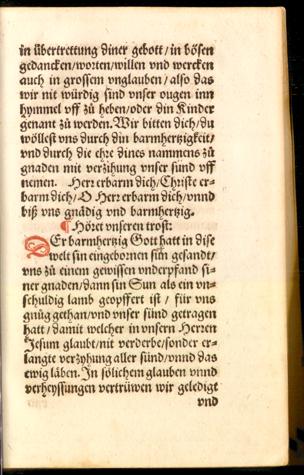 in übertrettung diner gebott / in bösen
gedancken / worten / willen vnd wercken
auch in grossem vnglauben / also das
wir nit würdig sind vnser ougen inn
hymmel vff zů heben / oder din Kinder
genant zů werden. Wir bitten dich / du
wöllest vns durch din barmhertzigkeit /
vnd durch die ehre dines nammens zů
gnaden mit verzihung vnser sünd vff
nemen. Herr erbarm dich / Christe er-
barm dich / O Herr erbarm dich / vnnd
biß vns gnädig vnd barmhertzig.
¶ Hört vnseren trost:
DEr barmhertzig Gott hatt in dise
welt sin eingebornen sůn gesandt /
vns zů einem gewissen vnderpfand si-
ner gnaden / dann sin Sun als ein vn-
schuldig lamb geopffert ist / für vns
gnůg gethan / vnd vnser sünd getragen
hatt / damit welcher in vnsern Herren
Jesum glaubt / nit verderbe / sonder er-
langte verzyhung aller sünd / vnnd das
ewig läben. In sölichem glauben vnnd
verheyssungen vertrüwen wir geledigt
vnd